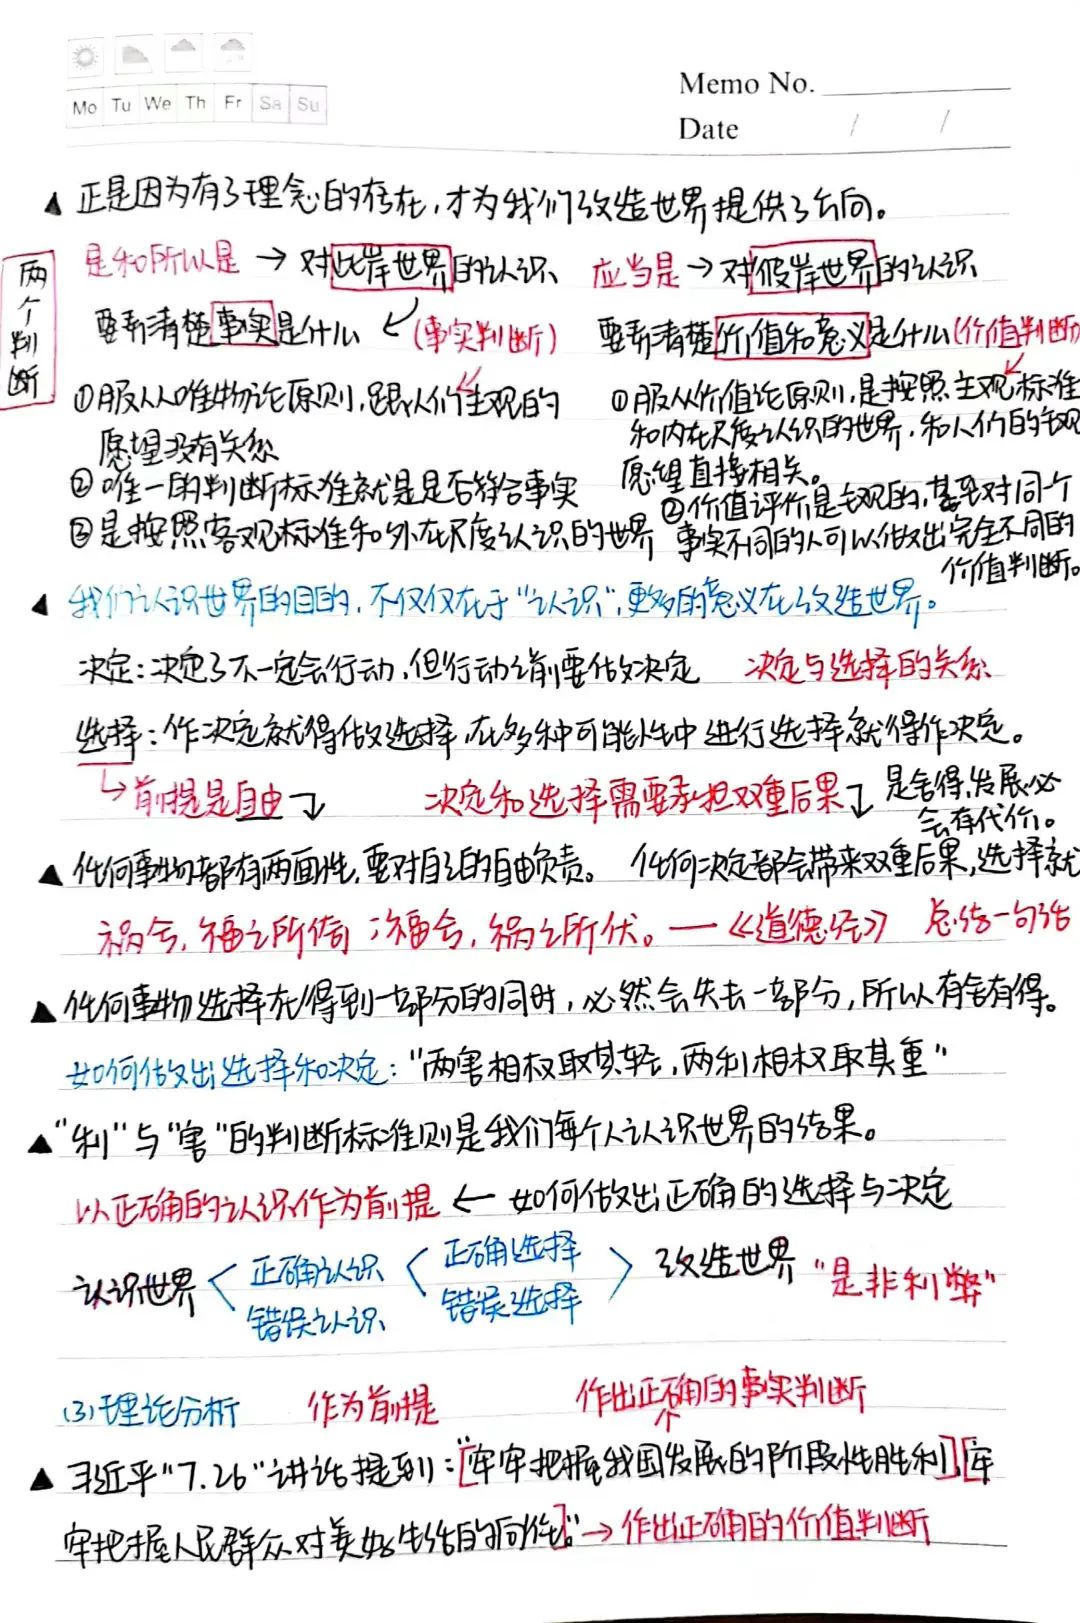 Memo No.
Mo Tu We Th Fr Sa Su
Date / /
▲ 正是因为有了理念的存在,才为我们改造世界提供了方向。
两个判断
是和所以是 → 对此岸世界的认识
要弄清楚事实是什么 (事实判断)
①服从唯物论原则,跟人们主观的
愿望没有关系
②唯一的判断标准就是是否符合事实
③是按照客观标准和外在尺度认识的世界
应当是 → 对彼岸世界的认识
要弄清楚价值和意义是什么(价值判断)
①服从价值论原则,是按照主观标准
和内在尺度认识的世界,和人们的主观
愿望直接相关。
②价值评价是主观的,甚至对同一个
事实不同的人可以做出完全不同的
价值判断。
▲ 我们认识世界的目的,不仅仅在于“认识”,更多的意义在改造世界。
决定:决定了不一定会行动,但行动之前要做决定 决定与选择的关系
选择:作决定就得做选择,在多种可能性中进行选择就得作决定。
↳前提是自由 决定和选择需要承担双重后果
▲ 任何事物都有两面性,要对自己的自由负责。 任何决定都会带来双重后果,选择就
是舍得,发展必
会有代价。
祸兮,福之所倚;福兮,祸之所伏。—《道德经》 总结一句话
▲ 任何事物选择在得到一部分的同时,必然会失去一部分,所以有舍有得。
如何做出选择和决定:“两害相权取其轻,两利相权取其重”
▲ “利”与“害”的判断标准则是我们每个人认识世界的结果。
以正确的认识作为前提 ← 如何做出正确的选择与决定
认识世界 正确认识 正确选择 改造世界 “是非利弊”
错误认识 错误选择
(3)理论分析 作为前提 作出正确的事实判断
▲ 习近平“7.26”讲话提到:“[牢牢把握我国发展的阶段性胜利],[牢
牢把握人民群众对美好生活的向往]。”→作出正确的价值判断